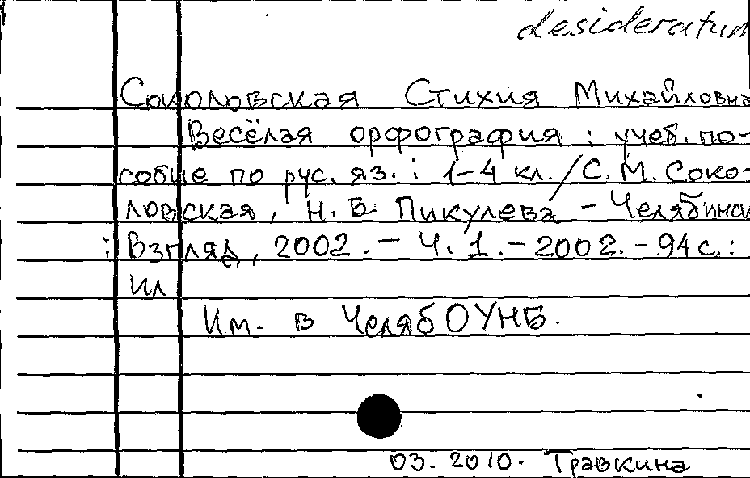 desideratum
Соколовская Стихия Михайловна
Весёлая орфография : учеб. по-
собие по рус. яз. : 1-4 кл. / С. М. Соко-
ловская, Н. Б. Пикулева - Челябинск
: Взгляд, 2002. - Ч. 1. - 2002. - 94 с. :
ил
Им. в ЧелябОУНБ.
03. 2010. Травкина